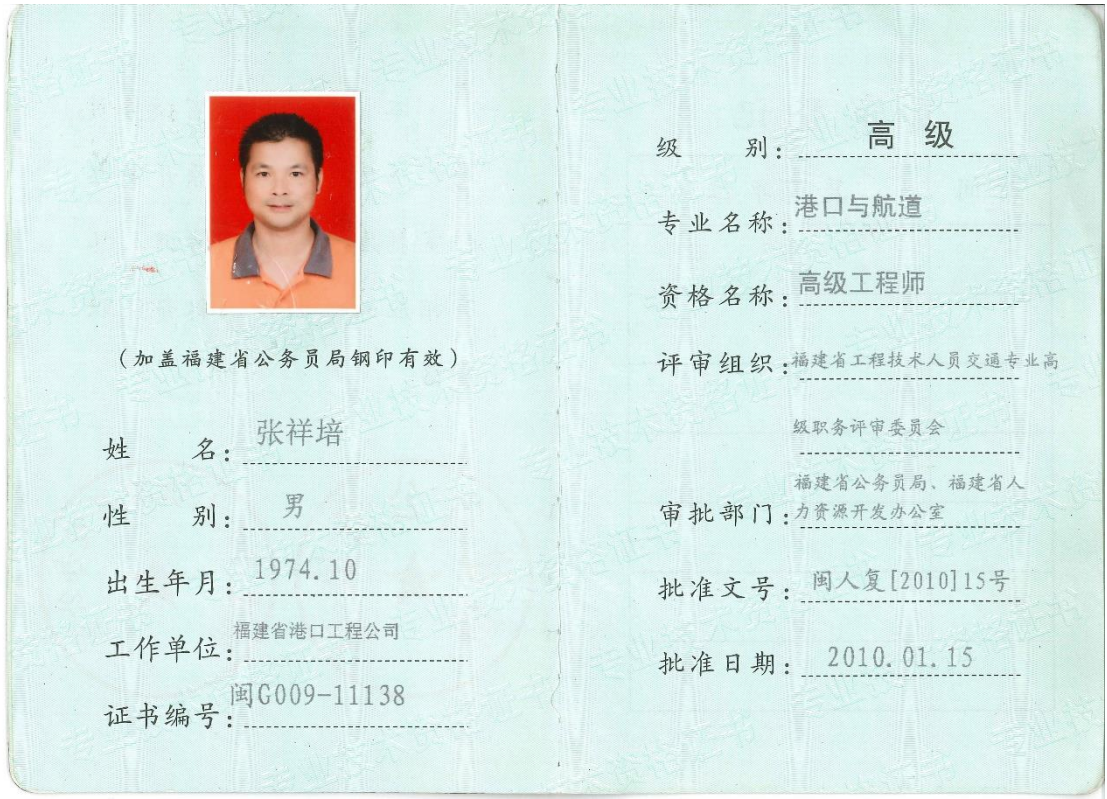 （加盖福建省公务员局钢印有效）
姓 名：张祥培
性 别：男
出生年月：1974.10
工作单位：福建省港口工程公司
证书编号：闽G009-11138
级 别：高 级
专业名称：港口与航道
资格名称：高级工程师
评审组织：福建省工程技术人员交通专业高
级职务评审委员会
福建省公务员局、福建省人
审批部门：力资源开发办公室
批准文号：闽人复[2010]15号
批准日期：2010.01.15